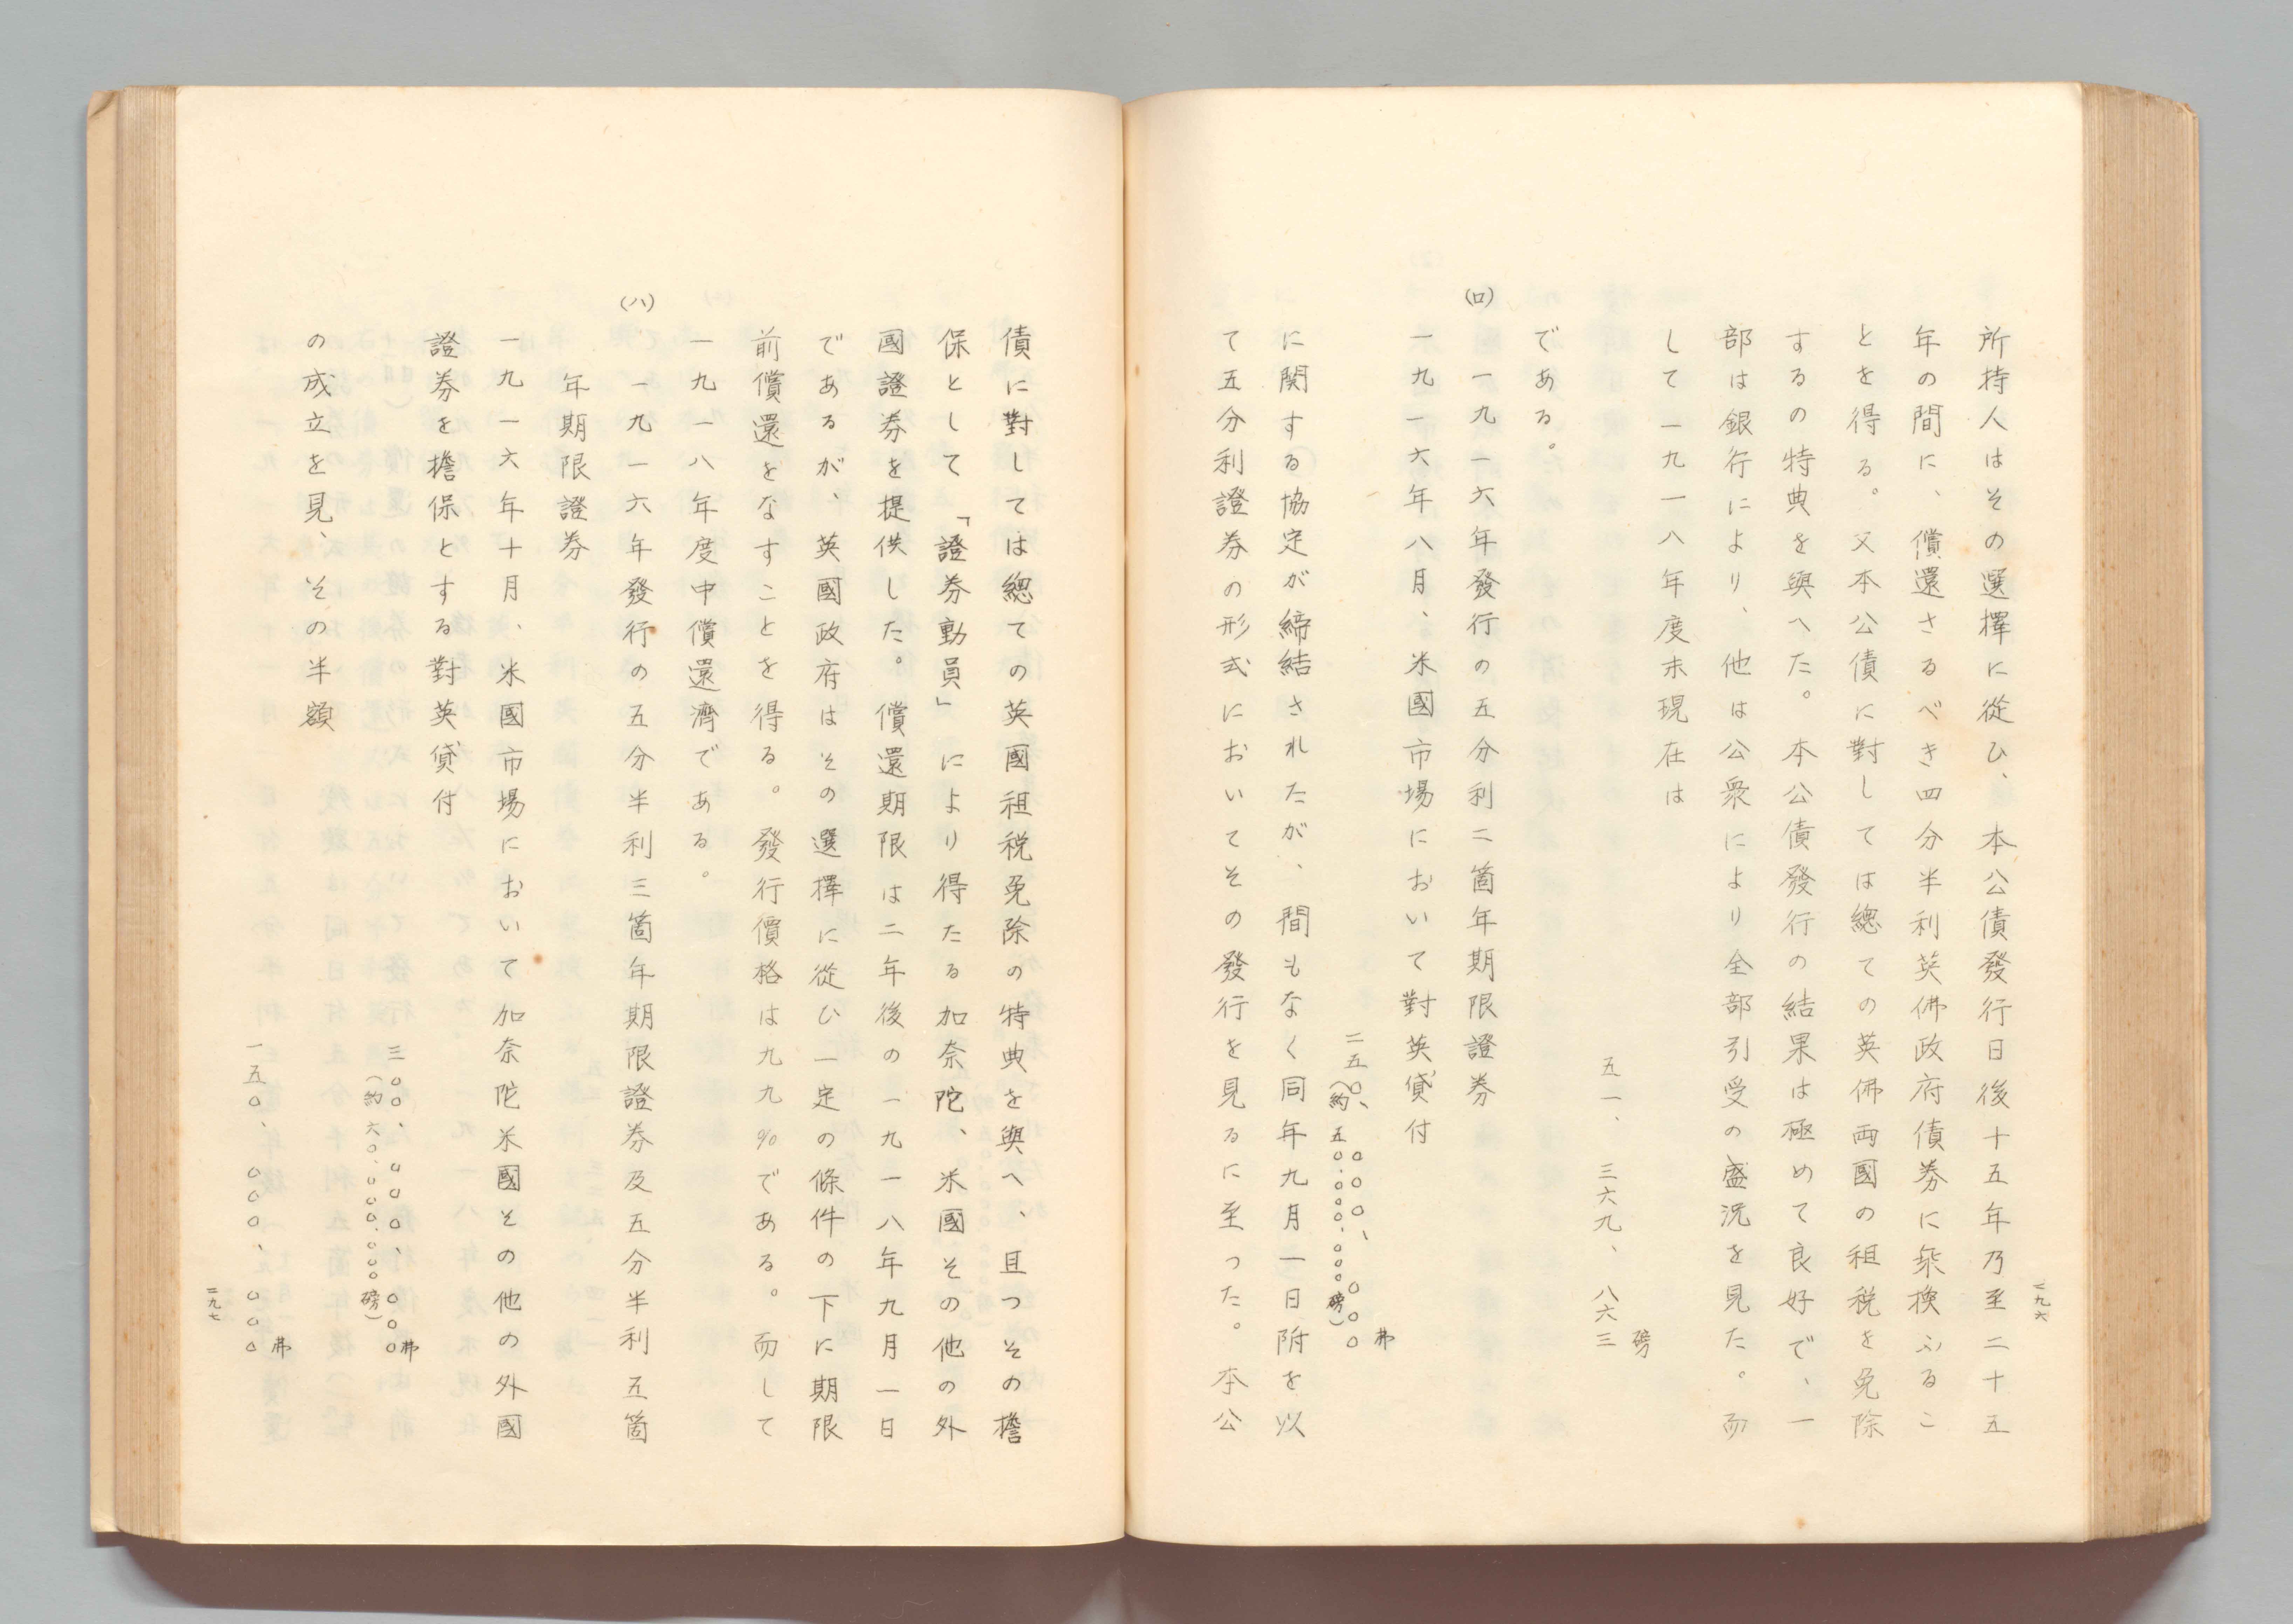 二九六
所持人はその選擇に從ひ、本公債發行日後十五年乃至二十五
年の間に、償還さるべき四分半利英佛政府債券に乘換ふるこ
とを得る。又本公債に對しては總ての英佛両國の租税を免除
するの特典を與へた。本公債發行の結果は極めて良好で、一
部は銀行により、他は公衆により全部引受の盛況を見た。而
して一九一八年度末現在は
五一、三六九、八六三磅
である。
(ロ)一九一六年發行の五分利二箇年期限證券
一九一六年八月、米國市場において對英貸付
二五〇、〇〇〇、〇〇〇弗
(約五〇、〇〇〇、〇〇〇磅)
に関する協定が締結されたが、間もなく同年九月一日附を以
て五分利證券の形式においてその發行を見るに至つた。本公
債に對しては總ての英國租税免除の特典を與へ、且つその擔
保として「證券動員」により得たる加奈陀、米國その他の外
國證券を提供した。償還期限は二年後の一九一八年九月一日
であるが、英國政府はその選擇に從ひ一定の條件の下に期限
前償還をなすことを得る。發行價格は九九%である。而して
一九一八年度中償還濟である。
(ハ)一九一六年發行の五分半利三箇年期限證券及五分半利五箇
年期限證券
一九一六年十月、米國市場において加奈陀米國その他の外國
證券を擔保とする對英貸付
三〇〇、〇〇〇、〇〇〇弗
(約六〇、〇〇〇、〇〇〇磅)
の成立を見、その半額
一五〇、〇〇〇、〇〇〇弗
二九七